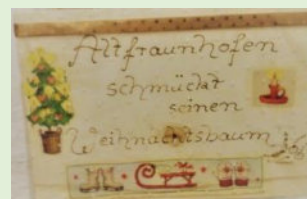 Altfraunhofen
schmückt
seinen
Weihnachtsbaum